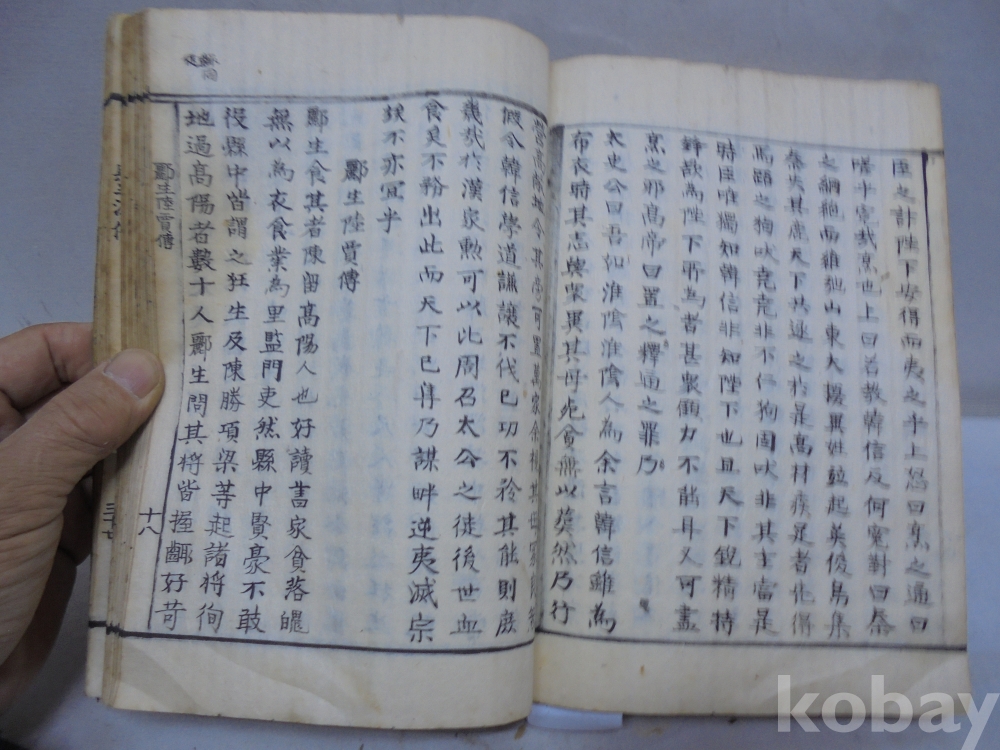 臣之計陛下安得而夷之乎上怒曰烹之通曰
嗟乎寃哉烹也上曰若教韓信反何寃對曰秦
之綱絶而維弛山東大擾異姓並起英俊烏集
秦失其鹿天下共逐之於是高材疾足者先得
焉蹠之狗吠堯堯非不仁狗固吠非其主當是
時臣唯獨知韓信非知陛下也且天下銳精持
鋒欲為陛下所為者甚衆顧力不能耳又可盡
烹之邪高帝曰置之釋通之罪乃
太史公曰吾如淮陰淮陰人為余言韓信雖為
布衣時其志與衆異其母死貧無以葬然乃行
營高敞地令其旁可置萬家余視其母冢
假令韓信學道謙讓不伐已功不矜其能則庶
幾哉於漢家勲可以比周召太公之徒後世血
食矣不務出此而天下已集乃謀畔逆夷滅宗
族不亦宜乎
酈生陸賈傳
酈生食其者陳留高陽人也好讀書家貧落魄
無以為衣食業為里監門吏然縣中賢豪不敢
役縣中皆謂之狂生及陳勝項梁等起諸將徇
地過高陽者數十人酈生問其將皆握齱好苛
酈生陸賈傳
十八
kobay